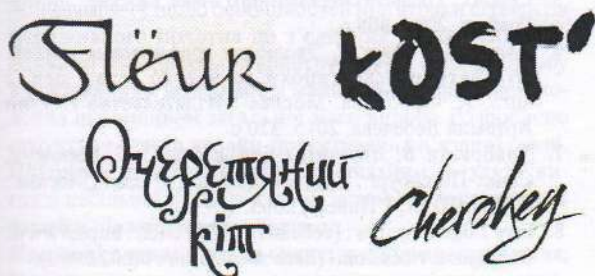 Flëur
KOST'
Очеретяний
кіт
Cherokey